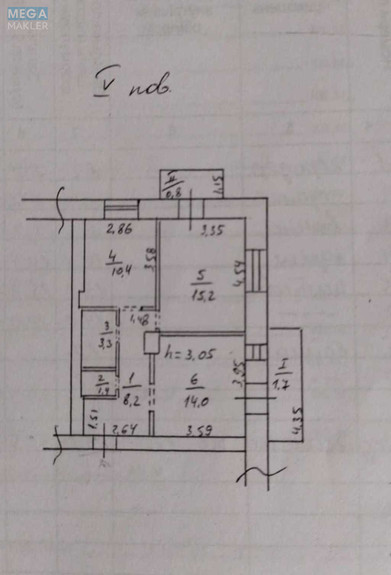 MEGA
MAKLER
V пов.
II
0,8
1,15
2,86
3,35
4
10,4
3,58
5
15,2
4,54
1,48
3
3,3
h=3,05
2
1,4
1
8,2
6
14,0
3,95
I
1,7
4,35
1,51
2,64
3,59